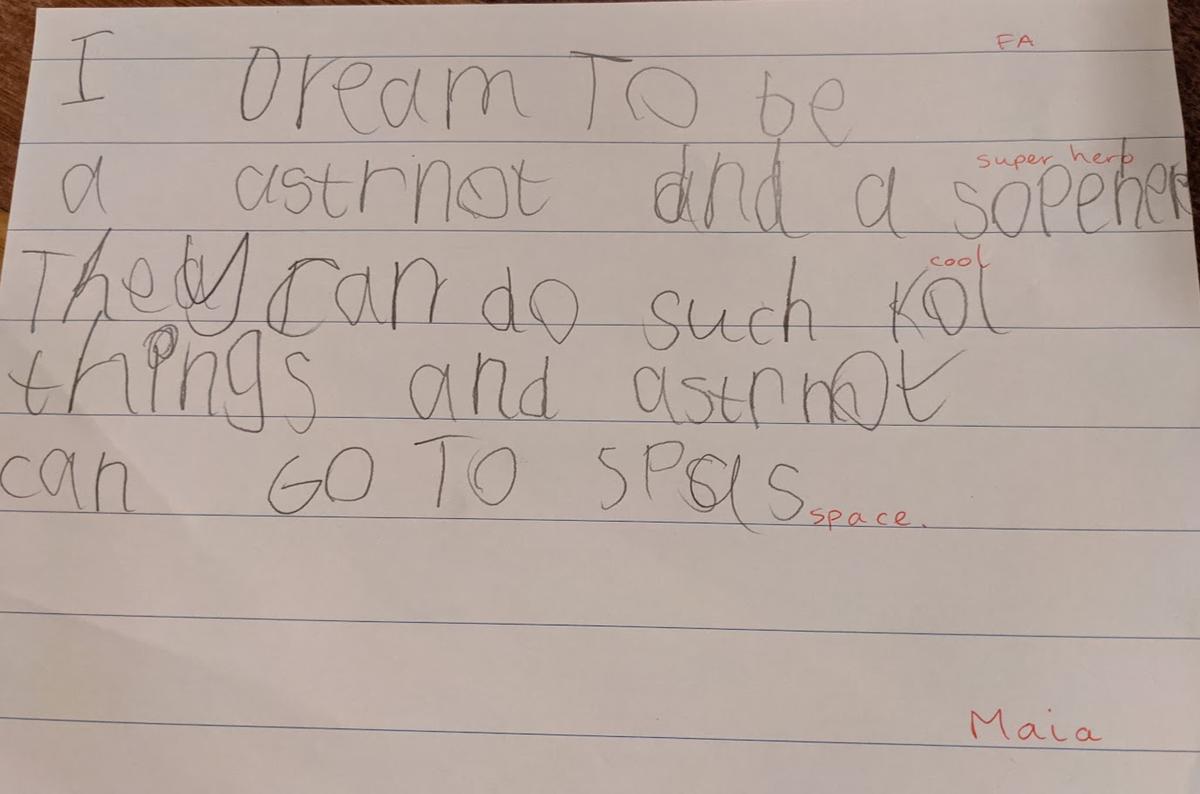 FA
I Dream TO be
super hero
a astrnot and a sopeher
cool
They can do such Kol
things and astrnot
can GO TO SPas
space.
Maia